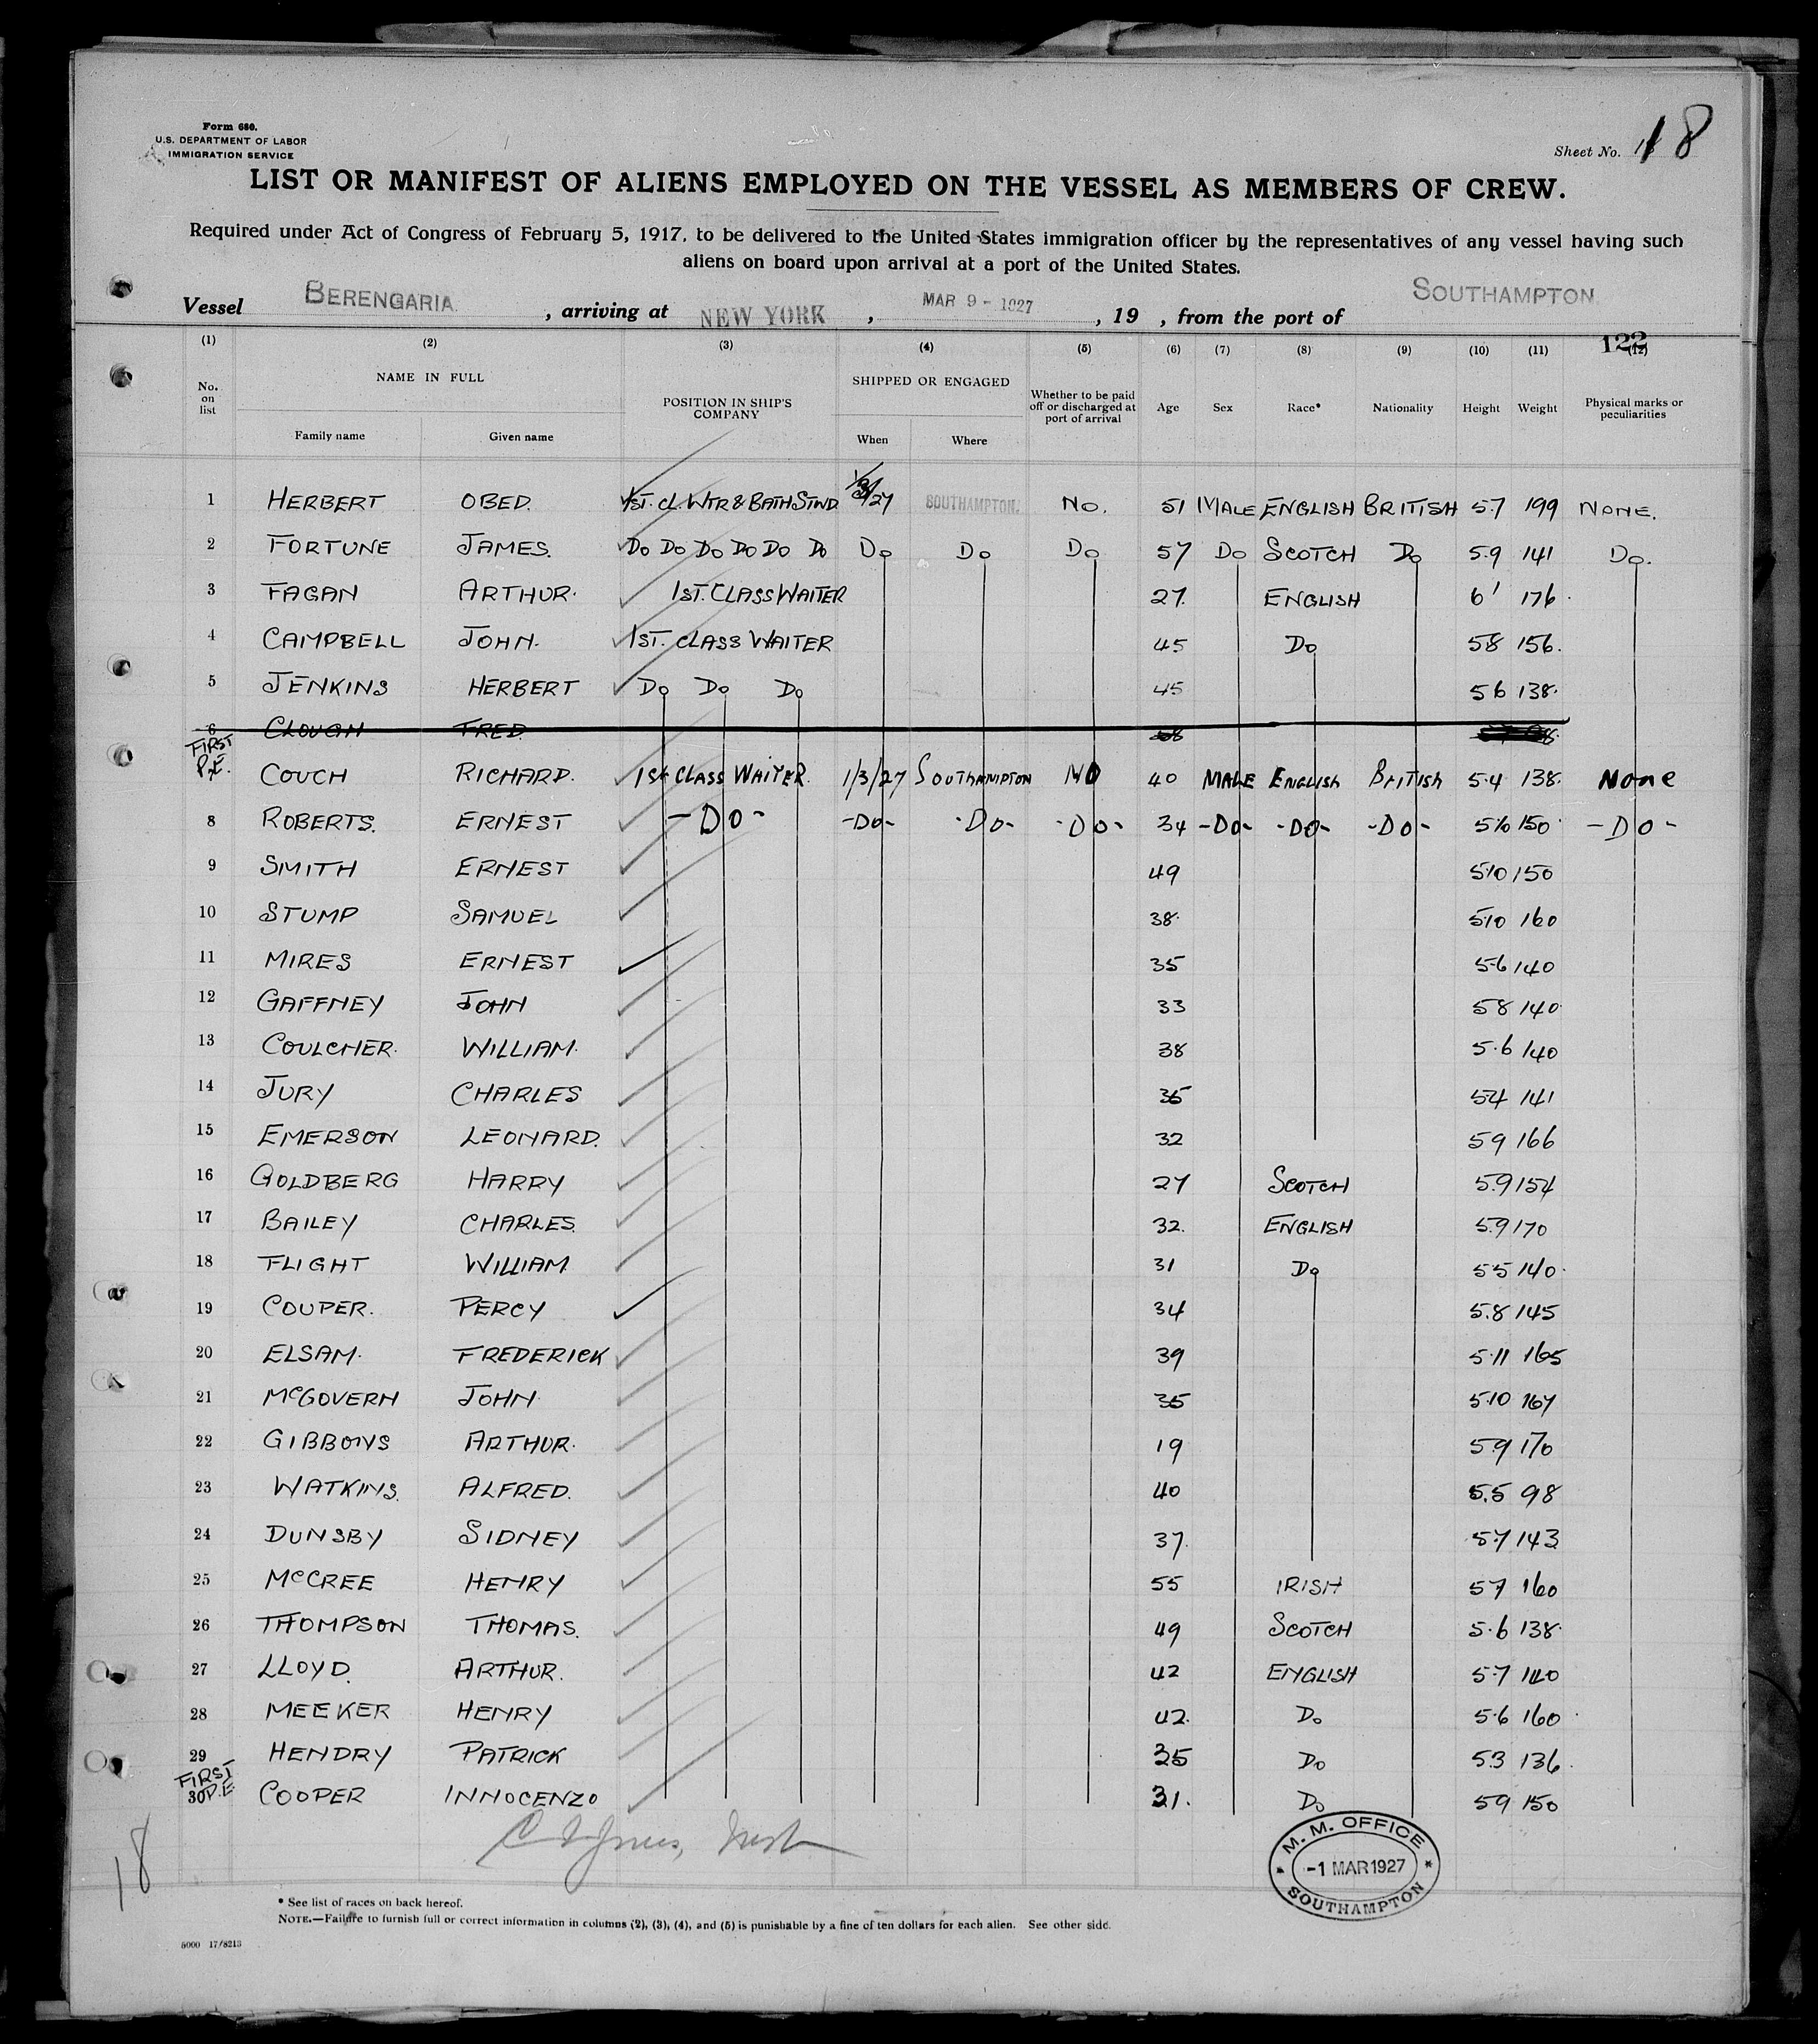 Form 680.
U.S. DEPARTMENT OF LABOR
IMMIGRATION SERVICE
Sheet No. 18
LIST OR MANIFEST OF ALIENS EMPLOYED ON THE VESSEL AS MEMBERS OF CREW.
Required under Act of Congress of February 5, 1917, to be delivered to the United States immigration officer by the representatives of any vessel having such
aliens on board upon arrival at a port of the United States.
Vessel BERENGARIA , arriving at NEW YORK , MAR 9 - 1927 , 19 , from the port of SOUTHAMPTON
122
(1) (2) (3) (4) (5) (6) (7) (8) (9) (10) (11) (12)
No. on list NAME IN FULL Family name Given name POSITION IN SHIP'S COMPANY SHIPPED OR ENGAGED When Where Whether to be paid off or discharged at port of arrival Age Sex Race* Nationality Height Weight Physical marks or peculiarities
1 HERBERT OBED. 1ST. CL. WTR & BATH STWD 1/3/27 SOUTHAMPTON. No. 51 MALE ENGLISH BRITISH 5.7 199 NONE.
2 FORTUNE JAMES. Do Do Do Do Do Do Do Do Do 57 Do SCOTCH Do 5.9 141 Do.
3 FAGAN ARTHUR. 1ST. CLASS WAITER 27. ENGLISH 6' 176.
4 CAMPBELL JOHN. 1ST. CLASS WAITER 45 Do 58 156.
5 JENKINS HERBERT Do Do Do 45 56 138.
6 CLOUGH FRED.
FIRST P.E. COUCH RICHARD. 1st CLASS WAITER. 1/3/27 SOUTHAMPTON NO 40 MALE ENGLISH BRITISH 5.4 138. None
8 ROBERTS. ERNEST -DO- -DO- -DO- -DO- 34 -DO- -DO- -DO- 5/10 150 -DO-
9 SMITH ERNEST 49 5/10 150
10 STUMP SAMUEL 38. 5/10 160
11 MIRES ERNEST 35 5-6 140
12 GAFFNEY JOHN 33 58 140
13 COULCHER. WILLIAM. 38 5.6 140
14 JURY CHARLES 35 54 141
15 EMERSON LEONARD. 32 59 166
16 GOLDBERG HARRY 27 SCOTCH 5.9 154
17 BAILEY CHARLES. 32. ENGLISH 5.9 170
18 FLIGHT WILLIAM. 31 Do 55 140.
19 COUPER. PERCY 34 5.8 145
20 ELSAM. FREDERICK 39 5.11 165
21 McGOVERN JOHN. 35 5.10 167
22 GIBBONS ARTHUR. 19 5.9 170
23 WATKINS. ALFRED. 40 5.5 98
24 DUNSBY SIDNEY 37. 5.7 143
25 McCREE HENRY 55 IRISH 57 160
26 THOMPSON THOMAS. 49 SCOTCH 5.6 138.
27 LLOYD. ARTHUR. 42 ENGLISH 5.7 140
28 MEEKER HENRY 42. Do 5.6 160
29 HENDRY PATRICK 35 Do 5.3 136.
FIRST P.E. 30 COOPER INNOCENZO 31. Do 59 150
M. M. OFFICE
-1 MAR 1927
SOUTHAMPTON
18
* See list of races on back hereof.
NOTE.—Failure to furnish full or correct information in columns (2), (3), (4), and (5) is punishable by a fine of ten dollars for each alien. See other side.
5000 17/8213